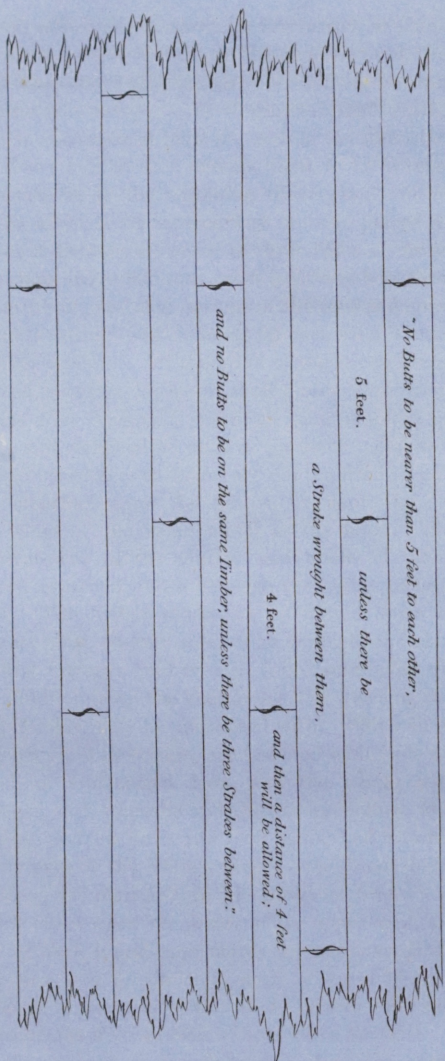 "No Butts to be nearer than 5 feet to each other,
5 feet. unless there be
a Strake wrought between them,
4 feet. and then a distance of 4 feet
will be allowed;
and no Butts to be on the same Timber, unless there be three Strakes between."